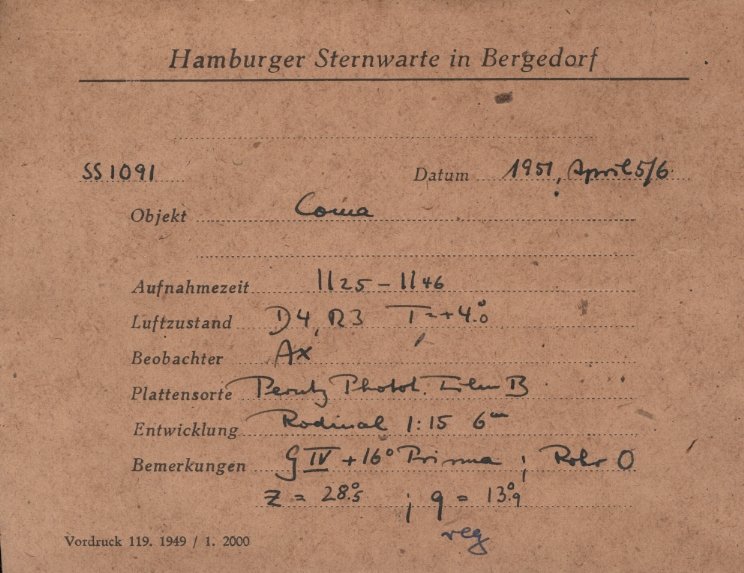 Hamburger Sternwarte in Bergedorf
SS1091 Datum 1951, April 5/6
Objekt Coma
Aufnahmezeit 1125 – 1146
Luftzustand D4, R3 T = +4.°0
Beobachter Ax
Plattensorte Perutz Photot. Film B
Entwicklung Rodinal 1:15 6m
Bemerkungen G IV + 16° Prisma ; Rohr O
z = 28.°5 ; q = 13.°9
reg
Vordruck 119. 1949 / 1. 2000